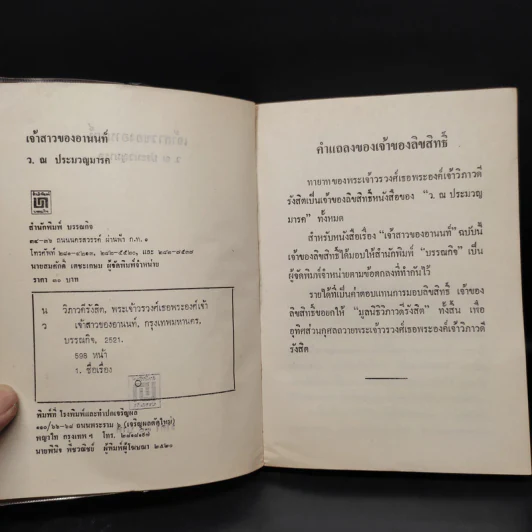 เจ้าสาวของอานนท์
ว. ณ ประมวญมารค
สำนักพิมพ์ บรรณกิจ
๓๔-๓๖ ถนนนครสวรรค์ ผ่านฟ้า ก.ท. ๑
นายสมศักดิ์ เตชะเกษม ผู้จัดพิมพ์จำหน่าย
ราคา ๓๐ บาท
น วิภาวดีรังสิต, พระเจ้าวรวงศ์เธอพระองค์เจ้า
ว เจ้าสาวของอานนท์, กรุงเทพมหานคร,
บรรณกิจ, 2521.
598 หน้า
1. ชื่อเรื่อง
พิมพ์ที่ โรงพิมพ์และทำปกเจริญผล
๑๑๐/๖๖-๖๘ ถนนพระราม ๖ (เจริญผลตึกใหม่)
พญาไท กรุงเทพ ฯ โทร.
นายพินิจ พืชวณิชย์ ผู้พิมพ์ผู้โฆษณา ๒๕๒๐
คำแถลงของเจ้าของลิขสิทธิ์
ทายาทของพระเจ้าวรวงศ์เธอพระองค์เจ้าวิภาวดี
รังสิตเป็นเจ้าของลิขสิทธิ์หนังสือของ "ว. ณ ประมวญ
มารค" ทั้งหมด
สำหรับหนังสือเรื่อง "เจ้าสาวของอานนท์" ฉบับนี้
เจ้าของลิขสิทธิ์ได้มอบให้สำนักพิมพ์ "บรรณกิจ" เป็น
ผู้จัดพิมพ์จำหน่ายตามข้อตกลงที่ทำกันไว้
รายได้ที่เป็นค่าตอบแทนการมอบลิขสิทธิ์ เจ้าของ
ลิขสิทธิ์ขอยกให้ "มูลนิธิวิภาวดีรังสิต" ทั้งสิ้น เพื่อ
อุทิศส่วนกุศลถวายพระเจ้าวรวงศ์เธอพระองค์เจ้าวิภาวดี
รังสิต